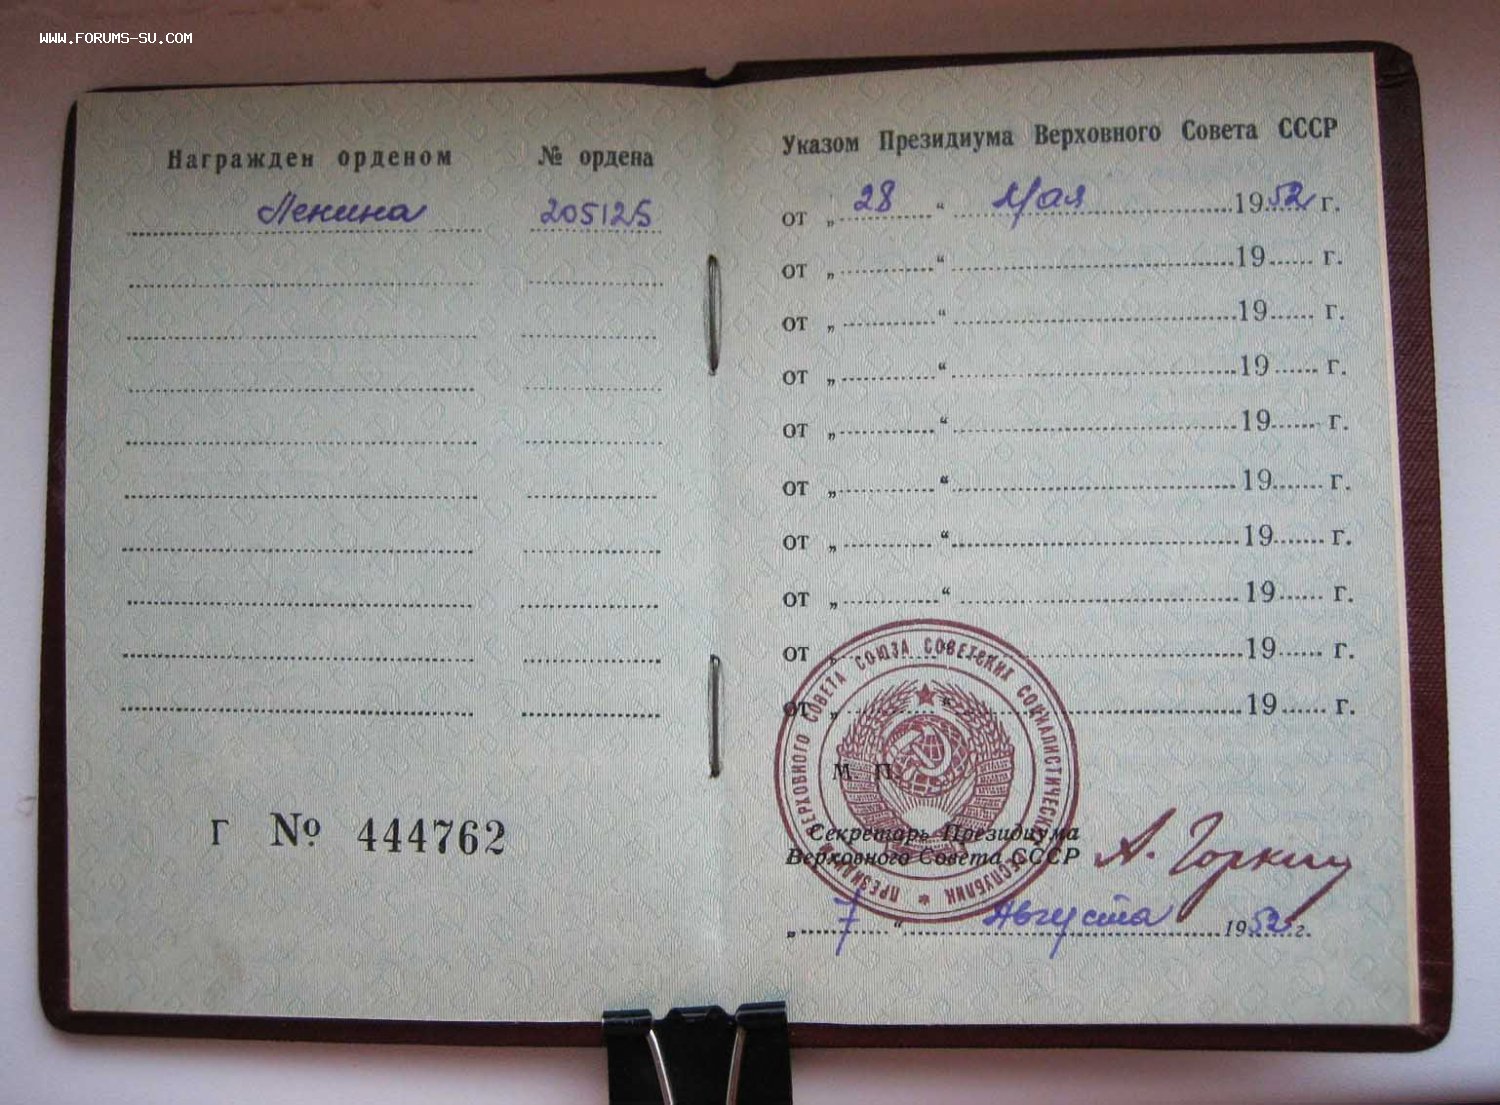 WWW.FORUMS-SU.COM
Награжден орденом № ордена
Ленина 205125
Г № 444762
Указом Президиума Верховного Совета СССР
от „ 28 “ Мая 1952 г.
от „ “ 19 г.
от „ “ 19 г.
от „ “ 19 г.
от „ “ 19 г.
от „ “ 19 г.
от „ “ 19 г.
от „ “ 19 г.
от „ “ 19 г.
от „ “ 19 г.
М. П.
ПРЕЗИДИУМ ВЕРХОВНОГО СОВЕТА СОЮЗА СОВЕТСКИХ СОЦИАЛИСТИЧЕСКИХ РЕСПУБЛИК *
Секретарь Президиума
Верховного Совета СССР А. Горкин
„ 7 “ Августа 1952 г.